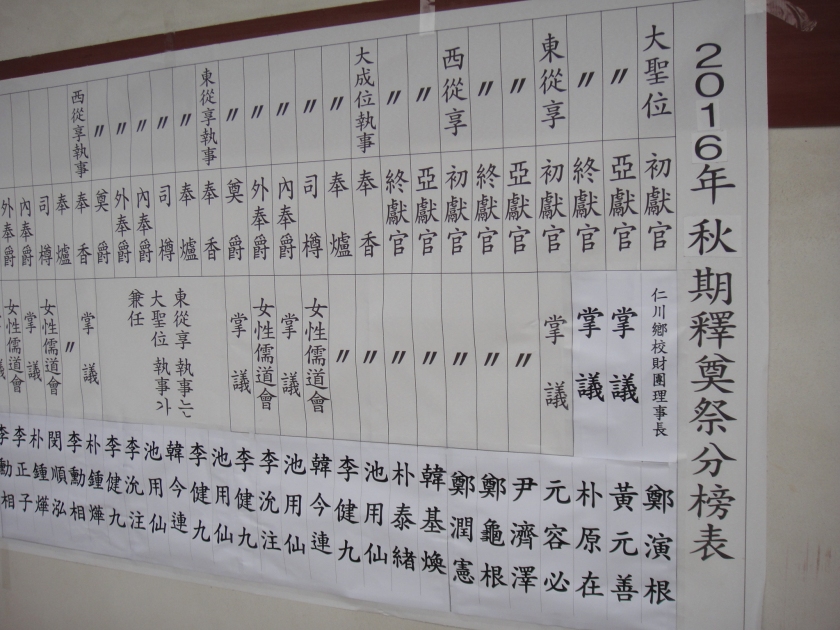 2016年 秋期釋奠祭分榜表
大聖位 初獻官 仁川鄕校財團理事長 鄭演根
〃 亞獻官 掌議 黃元善
〃 終獻官 掌議 朴原在
東從享 初獻官 掌議 元容必
〃 亞獻官 〃 尹濟澤
〃 終獻官 〃 鄭龜根
西從享 初獻官 〃 鄭潤憲
〃 亞獻官 〃 韓基煥
〃 終獻官 〃 朴泰緖
大成位執事 奉香 〃 池用仙
〃 奉爐 〃 李健九
〃 司樽 女性儒道會 韓今連
〃 內奉爵 掌議 池用仙
〃 外奉爵 女性儒道會 李沇注
〃 奠爵 掌議 李健九
東從享執事 奉香 池用仙
〃 奉爐 李健九
〃 司樽 韓今連
〃 內奉爵 池用仙
〃 外奉爵 李沇注
〃 奠爵 李健九
東從享 執事는
大聖位 執事가
兼任
西從享執事 奉香 掌議 朴鍾燁
奉爐 〃 李勳相
司樽 女性儒道會 閔順泓
內奉爵 掌議 朴鍾燁
外奉爵 女性儒道會 李正子
李勳相